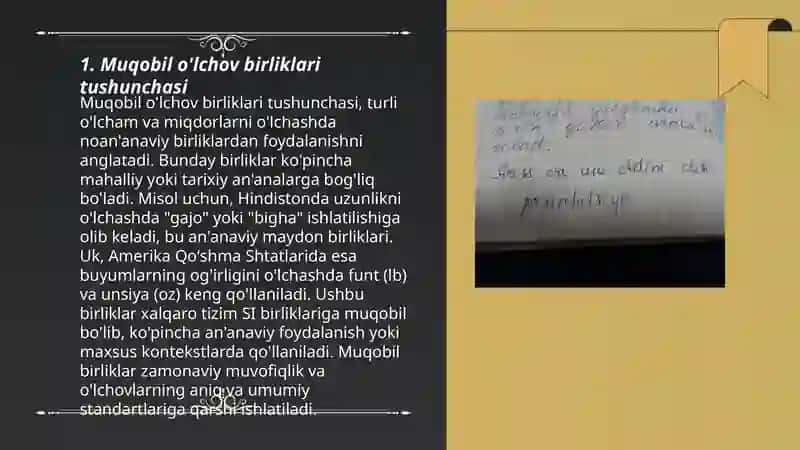 1. Muqobil o'lchov birliklari
tushunchasi
Muqobil o'lchov birliklari tushunchasi, turli
o'lcham va miqdorlarni o'lchashda
noan'anaviy birliklardan foydalanishni
anglatadi. Bunday birliklar ko'pincha
mahalliy yoki tarixiy an'analarga bog'liq
bo'ladi. Misol uchun, Hindistonda uzunlikni
o'lchashda "gajo" yoki "bigha" ishlatilishiga
olib keladi, bu an'anaviy maydon birliklari.
Uk, Amerika Qo'shma Shtatlarida esa
buyumlarning og'irligini o'lchashda funt (lb)
va unsiya (oz) keng qo'llaniladi. Ushbu
birliklar xalqaro tizim SI birliklariga muqobil
bo'lib, ko'pincha an'anaviy foydalanish yoki
maxsus kontekstlarda qo'llaniladi. Muqobil
birliklar zamonaviy muvofiqlik va
o'lchovlarning aniq va umumiy
standartlariga qarshi ishlatiladi.